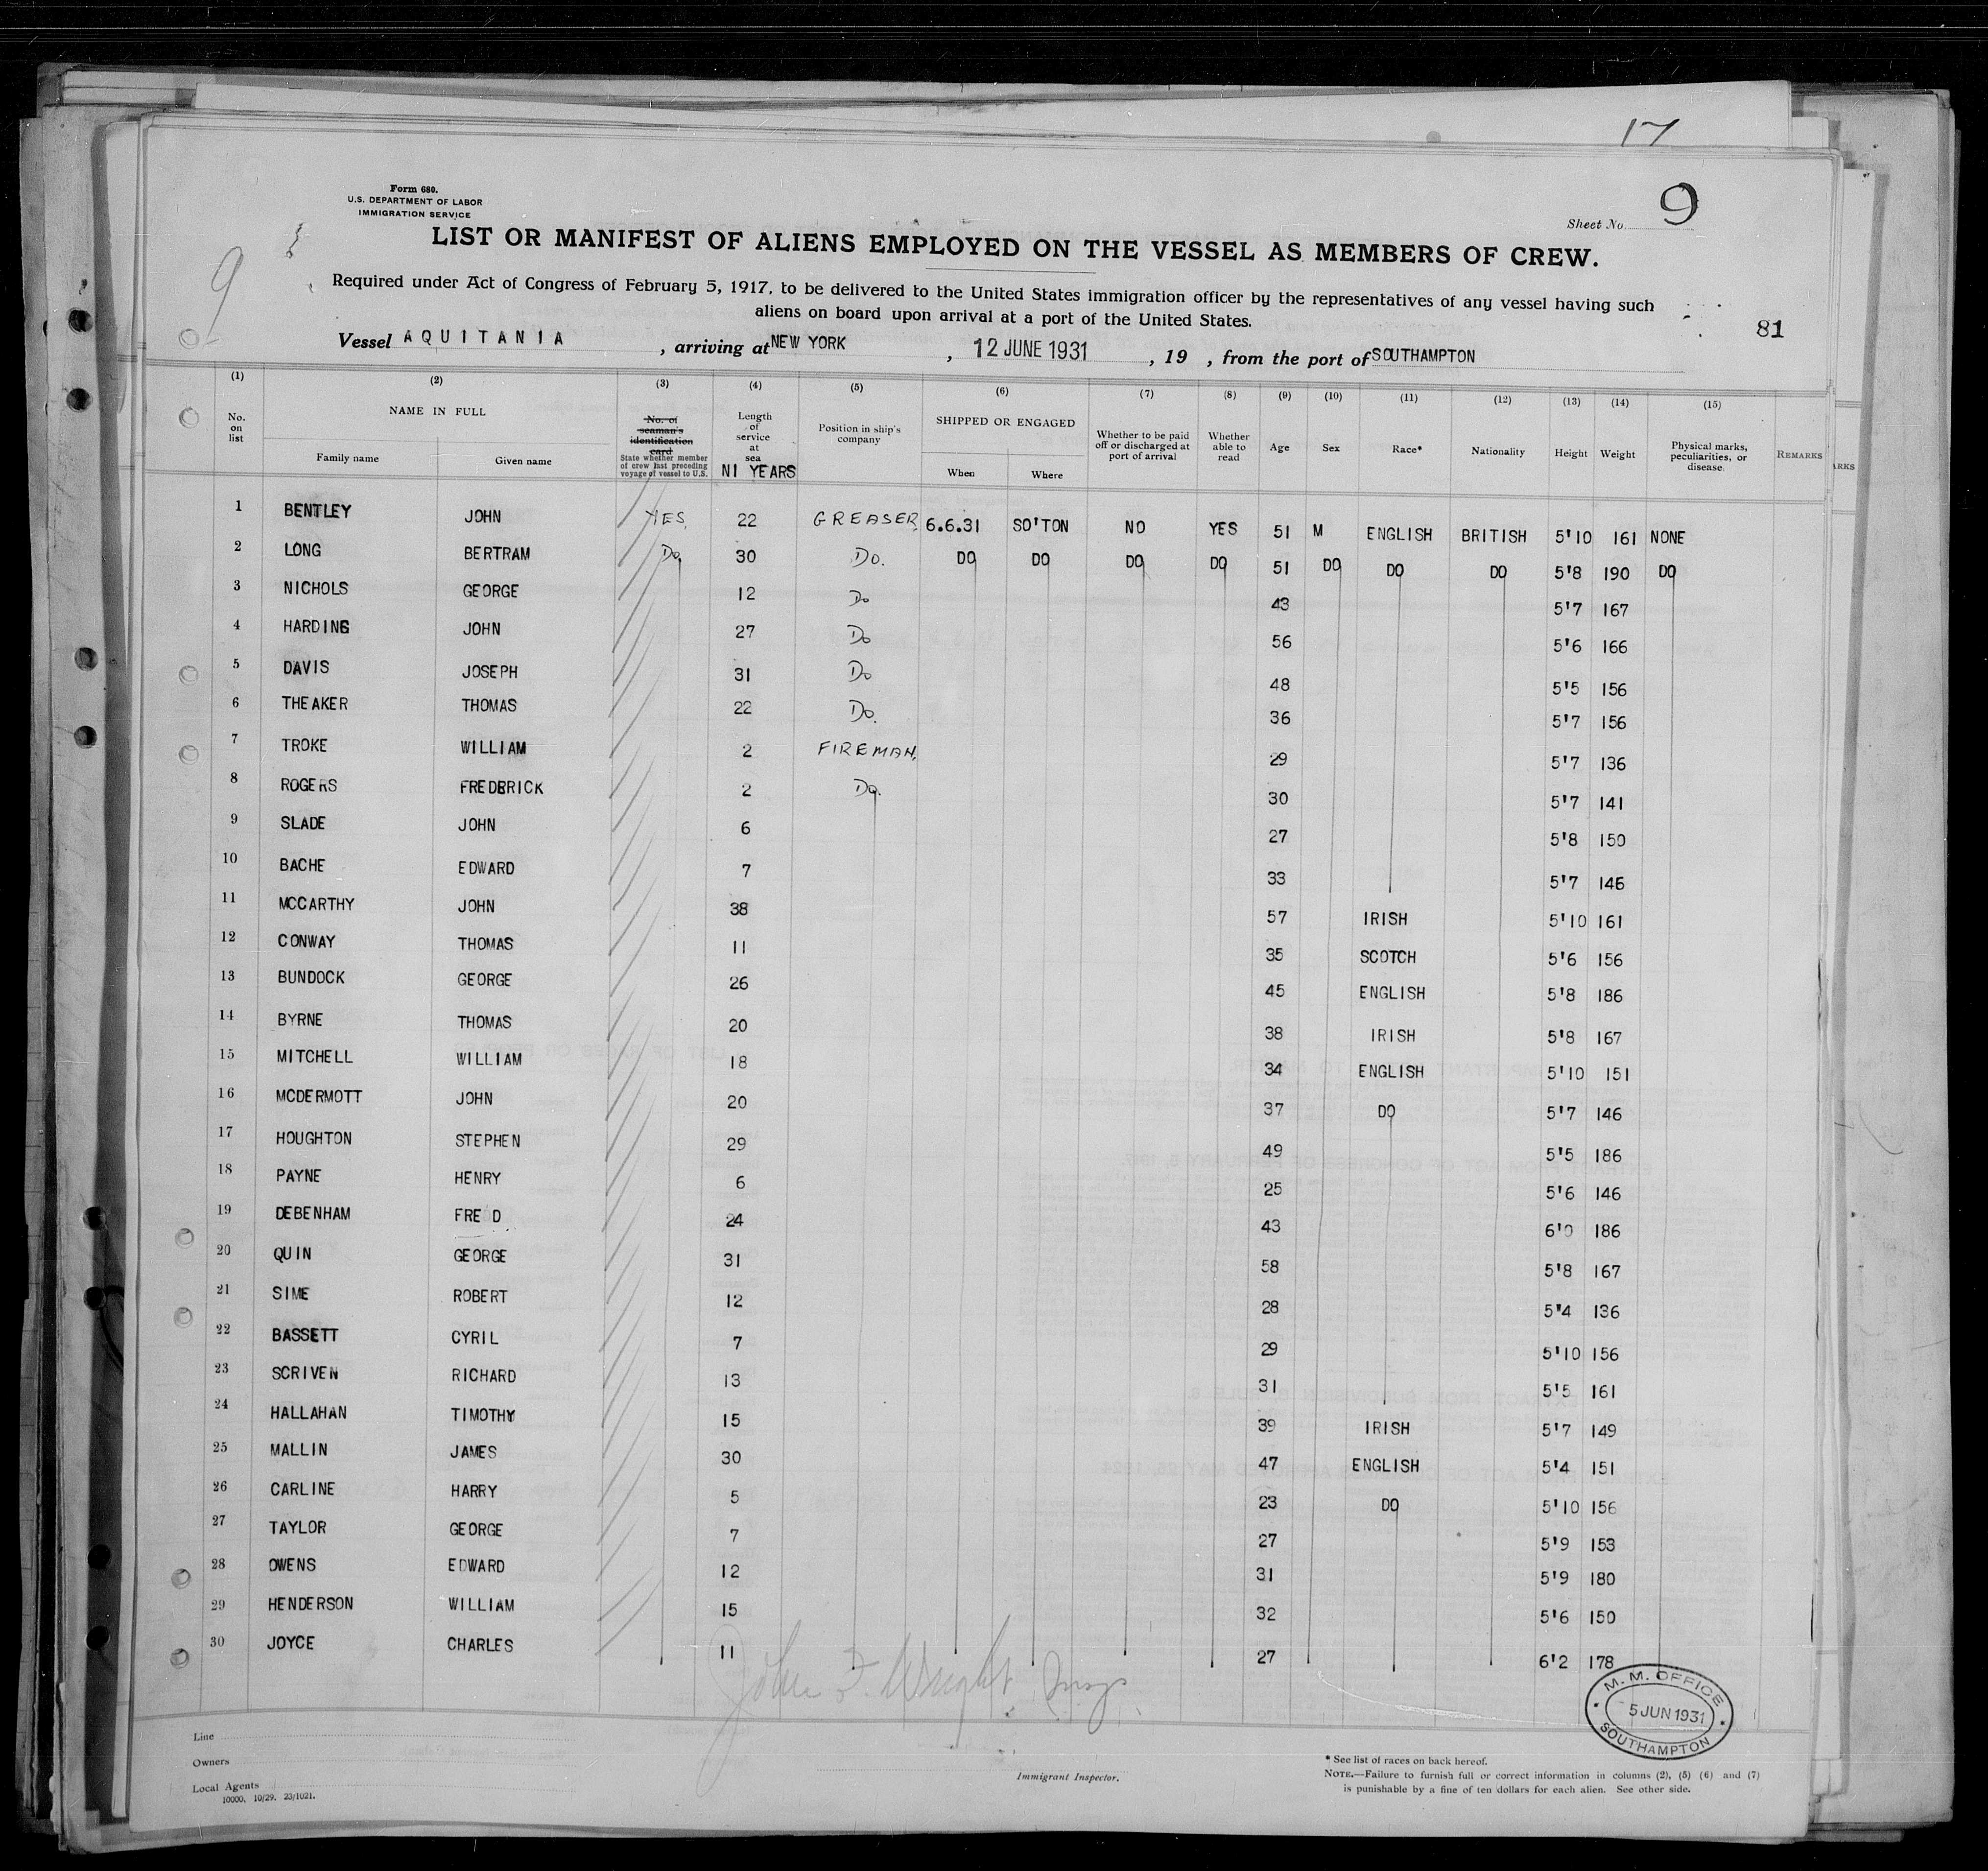 17
Form 680.
U.S. DEPARTMENT OF LABOR
IMMIGRATION SERVICE
Sheet No. 9
9
LIST OR MANIFEST OF ALIENS EMPLOYED ON THE VESSEL AS MEMBERS OF CREW.
Required under Act of Congress of February 5, 1917, to be delivered to the United States immigration officer by the representatives of any vessel having such
aliens on board upon arrival at a port of the United States.
81
Vessel AQUITANIA, arriving at NEW YORK, 12 JUNE 1931, 19 , from the port of SOUTHAMPTON
(1) (2) (3) (4) (5) (6) (7) (8) (9) (10) (11) (12) (13) (14) (15)
No. on list
NAME IN FULL
Family name Given name
No. of seaman's identification card
State whether member of crew last preceding voyage of vessel to U.S.
Length of service at sea
NI YEARS
Position in ship's company
SHIPPED OR ENGAGED
When Where
Whether to be paid off or discharged at port of arrival
Whether able to read
Age Sex Race* Nationality Height Weight
Physical marks, peculiarities, or disease
REMARKS
ARKS
1 BENTLEY JOHN YES 22 GREASER 6.6.31 SO'TON NO YES 51 M ENGLISH BRITISH 5'10 161 NONE
2 LONG BERTRAM Do. 30 Do. DO DO DO DO 51 DO DO DO 5'8 190 DO
3 NICHOLS GEORGE 12 Do 43 5'7 167
4 HARDING JOHN 27 Do 56 5'6 166
5 DAVIS JOSEPH 31 Do 48 5'5 156
6 THEAKER THOMAS 22 Do. 36 5'7 156
7 TROKE WILLIAM 2 FIREMAN. 29 5'7 136
8 ROGERS FREDERICK 2 Do. 30 5'7 141
9 SLADE JOHN 6 27 5'8 150
10 BACHE EDWARD 7 33 5'7 146
11 MCCARTHY JOHN 38 57 IRISH 5'10 161
12 CONWAY THOMAS 11 35 SCOTCH 5'6 156
13 BUNDOCK GEORGE 26 45 ENGLISH 5'8 186
14 BYRNE THOMAS 20 38 IRISH 5'8 167
15 MITCHELL WILLIAM 18 34 ENGLISH 5'10 151
16 MCDERMOTT JOHN 20 37 DO 5'7 146
17 HOUGHTON STEPHEN 29 49 5'5 186
18 PAYNE HENRY 6 25 5'6 146
19 DEBENHAM FRE D 24 43 6'0 186
20 QUIN GEORGE 31 58 5'8 167
21 SIME ROBERT 12 28 5'4 136
22 BASSETT CYRIL 7 29 5'10 156
23 SCRIVEN RICHARD 13 31 5'5 161
24 HALLAHAN TIMOTHY 15 39 IRISH 5'7 149
25 MALLIN JAMES 30 47 ENGLISH 5'4 151
26 CARLINE HARRY 5 23 DO 5'10 156
27 TAYLOR GEORGE 7 27 5'9 153
28 OWENS EDWARD 12 31 5'9 180
29 HENDERSON WILLIAM 15 32 5'6 150
30 JOYCE CHARLES 11 27 6'2 178
John F. Wright
M. M. OFFICE
5 JUN 1931
SOUTHAMPTON
Line
Owners
Local Agents
10000. 10/29. 23/1021.
Immigrant Inspector.
* See list of races on back hereof.
NOTE.—Failure to furnish full or correct information in columns (2), (5) (6) and (7)
is punishable by a fine of ten dollars for each alien. See other side.